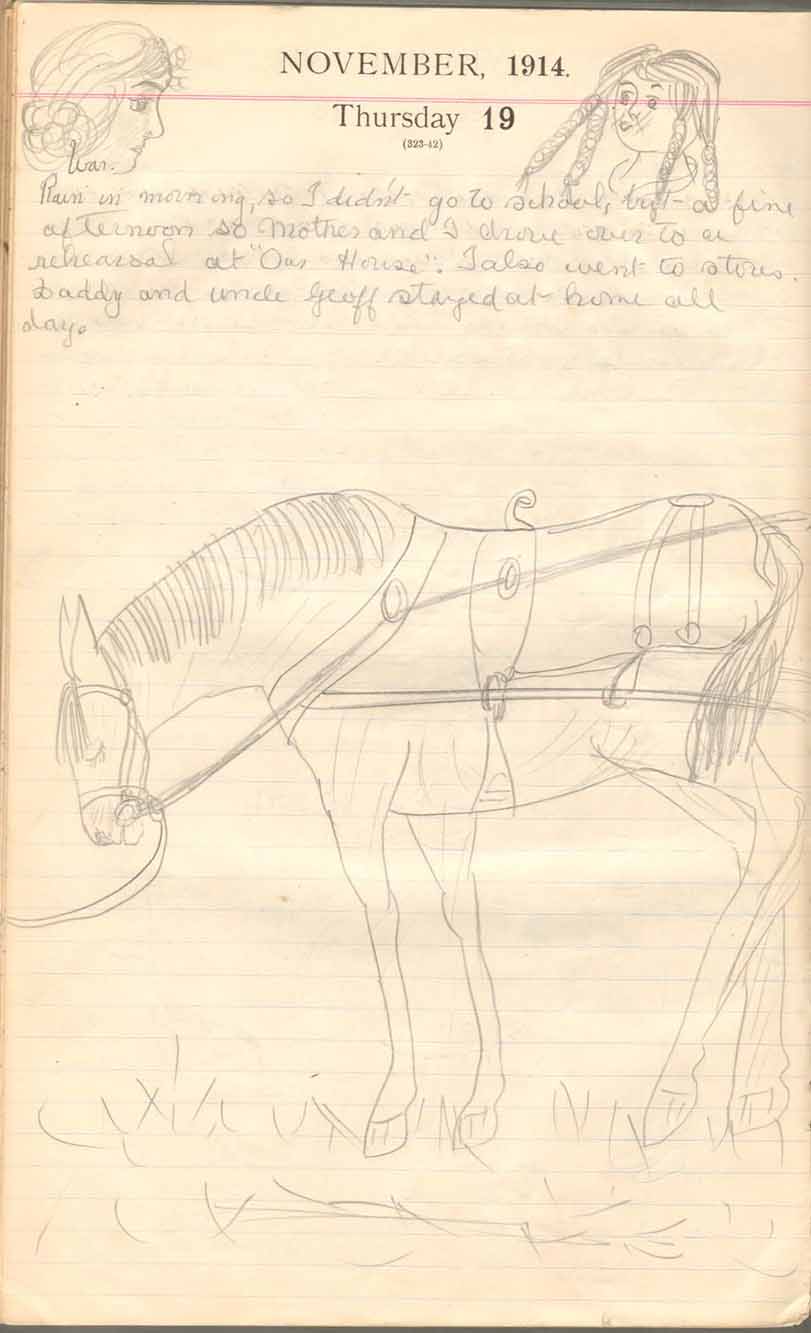 NOVEMBER, 1914.
Thursday 19
(323-42)
War.
Rain in morning, so I didn't go to school, but a fine
afternoon so Mother and I drove over to a
rehearsal at "Our House". I also went to stores.
Daddy and uncle Geoff stayed at home all
day.